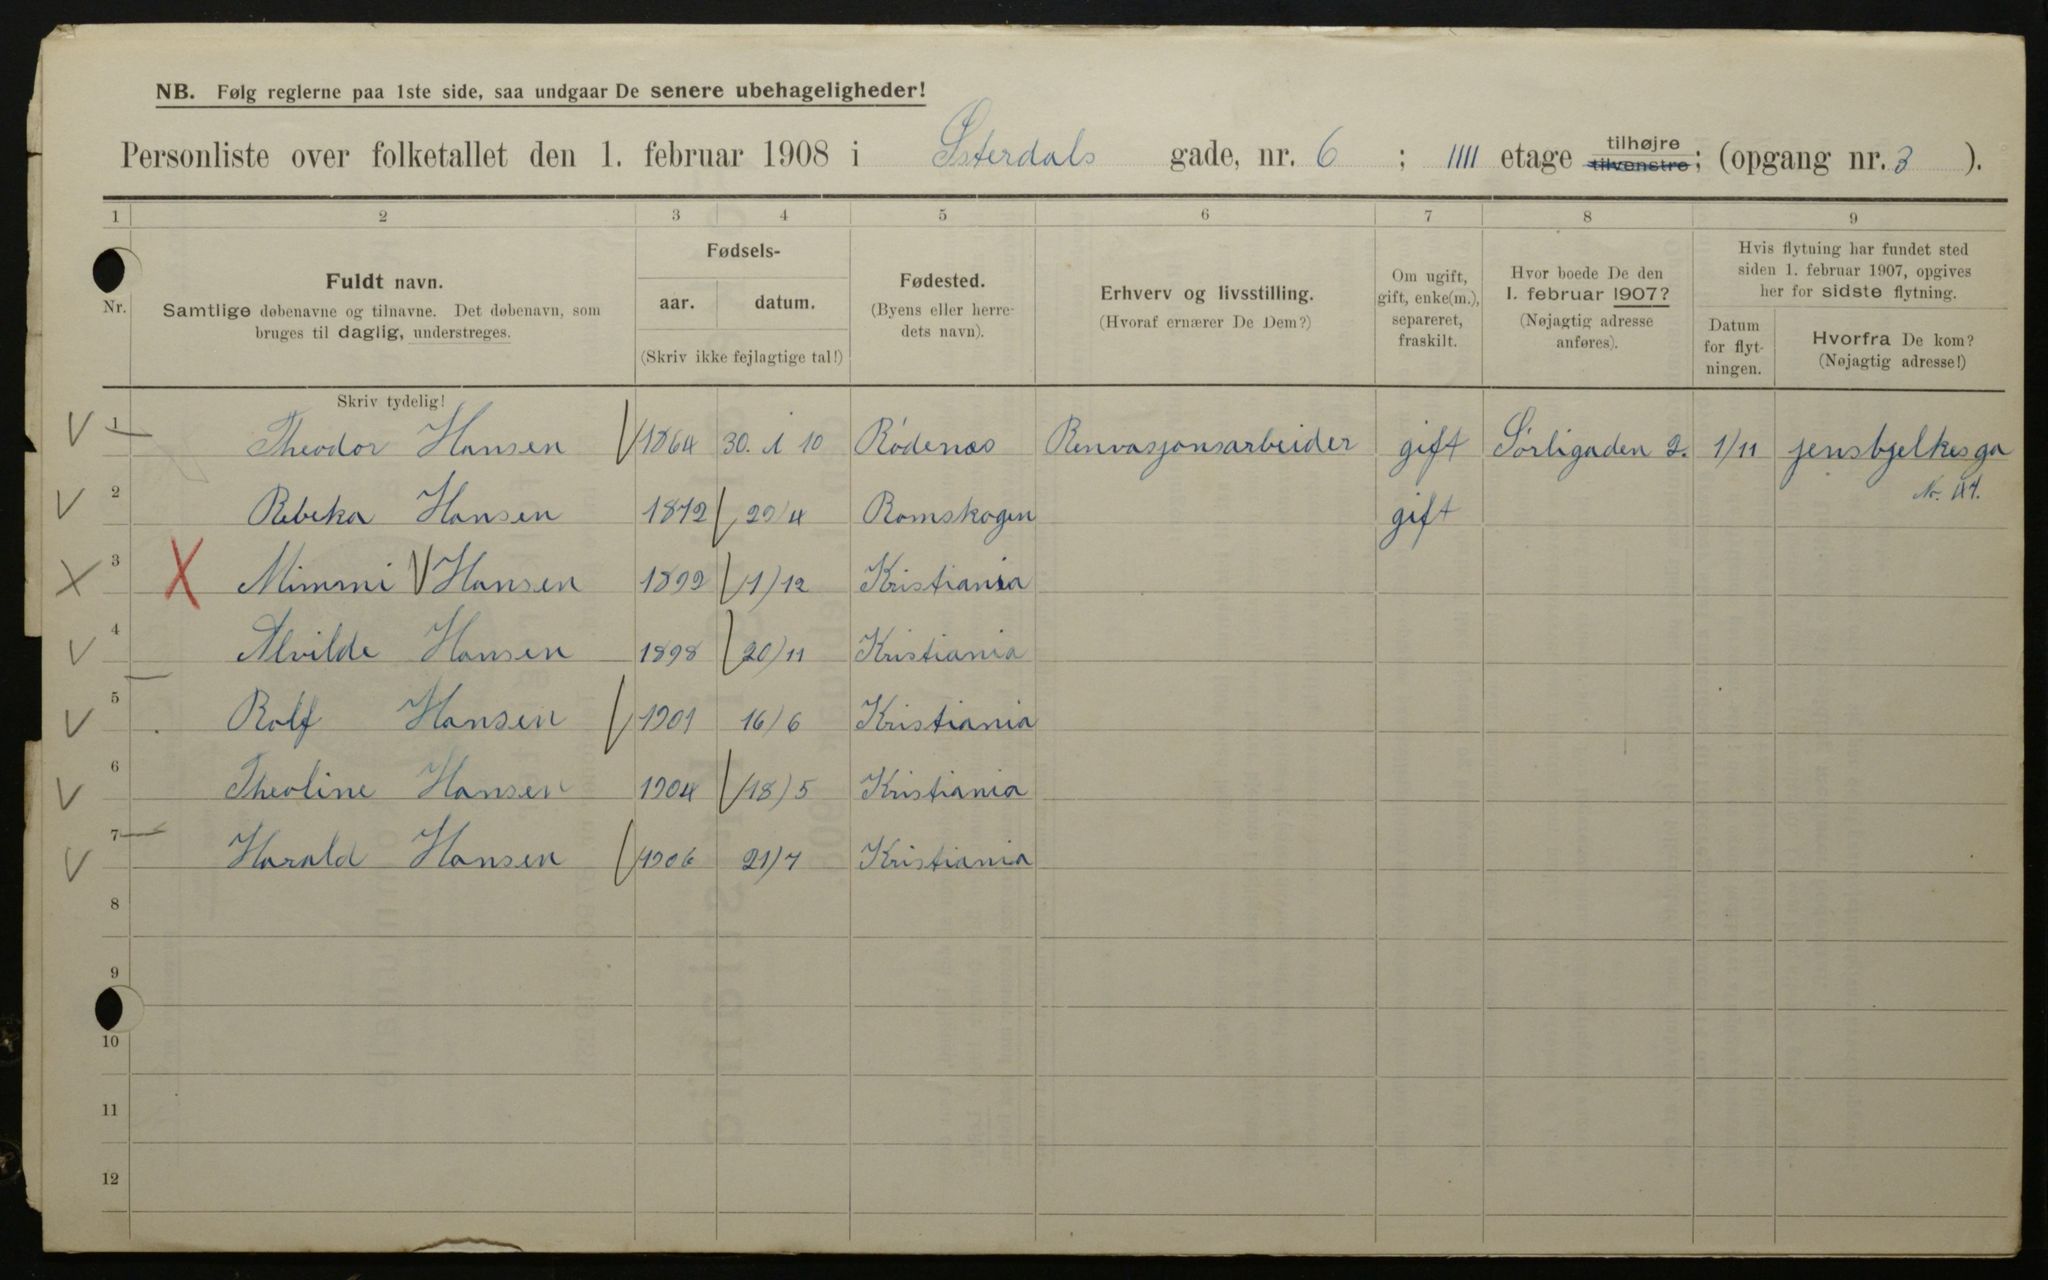 NB. Følg reglerne paa 1ste side, saa undgaar De senere ubehageligheder!
Personliste over folketallet den 1. februar 1908 i Østerdals gade, nr. 6 ; IIII etage tilhøjre tilvenstre; (opgang nr. 3 ).
1 2 3 4 5 6 7 8 9
Nr.
Fuldt navn.
Samtlige døbenavne og tilnavne. Det døbenavn, som
bruges til daglig, understreges.
Skriv tydelig!
Fødsels-
aar. datum.
(Skriv ikke fejlagtige tal!)
Fødested.
(Byens eller herre-
dets navn).
Erhverv og livsstilling.
(Hvoraf ernærer De Dem?)
Om ugift,
gift, enke(m.),
separeret,
fraskilt.
Hvor boede De den
1. februar 1907?
(Nøjagtig adresse
anføres).
Hvis flytning har fundet sted
siden 1. februar 1907, opgives
her for sidste flytning.
Datum
for flyt-
ningen.
Hvorfra De kom?
(Nøjagtig adresse!)
1 Theodor Hansen 1864 30. 10 Rödenæs Renvasjonsarbeider gift Sörligaden 2. 1/11 jensbjelkesga
Nr. 47.
2 Rebeka Hansen 1872 29/4 Romskogen gift
3 X Mimmi Hansen 1899 1/12 Kristiania
4 Alvilde Hansen 1898 20/11 Kristiania
5 Rolf Hansen 1901 16/6 Kristiania
6 Theoline Hansen 1904 18/5 Kristiania
7 Harald Hansen 1906 21/7 Kristiania
8
9
10
11
12